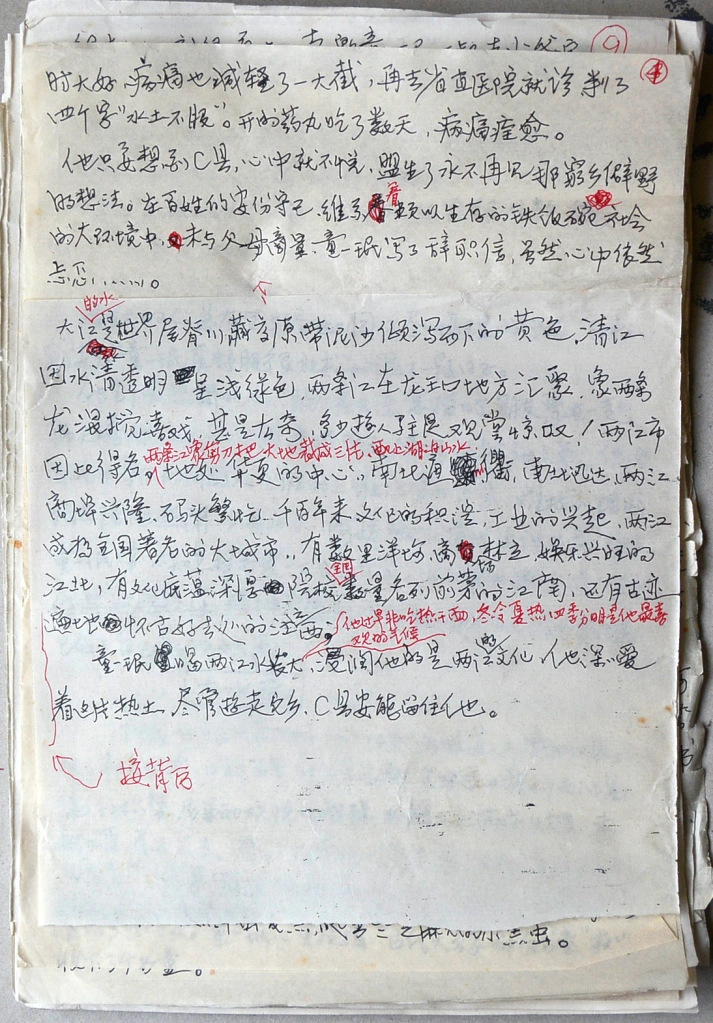 ⑨
④
时大好,病痛也减轻了一大截,再去省直医院就诊判了
四个字“水土不服”。开的药丸吃了数天,病痛痊愈。
他只要想到C县,心中就不悦,盟生了永不再见那穷乡僻野
的想法。在百姓的安份守己,维系着赖以生存的铁饭碗社会
的大环境中,未与父母商量,童一珉写了辞职信,虽然心中依然
忐忑……。
的水
大江是世界屋脊川藏高原带泥沙倾泻而下的黄色,清江
因水清透明呈浅绿色,两条江在龙王口地方汇聚,象两条
龙漫搅嬉戏,甚是大奇,多少楼人驻足观赏惊叹!两江市
两条江象剪刀把大地裁成三片,配上湖与山水
因此得名,地处华夏的中心,南北通衢,南北迅达,两江
商埠兴隆,码头繁忙,千百年来文化的积淀,工业的兴起,两江
成为全国著名的大城市,有数里洋场,商坊林立,娱乐兴旺的
江北,有文化底蕴深厚院校数量名列前茅的江南,还有古迹
遍地怀古好去处的江西。
他过早非吃热干面,冬冷夏热四季分明是他最喜
欢的气候
童一珉喝两江水长大,浸润他的是两江的文化,他深爱
着这片热土,尽管楼是它乡,C县安能留住他。
接背后